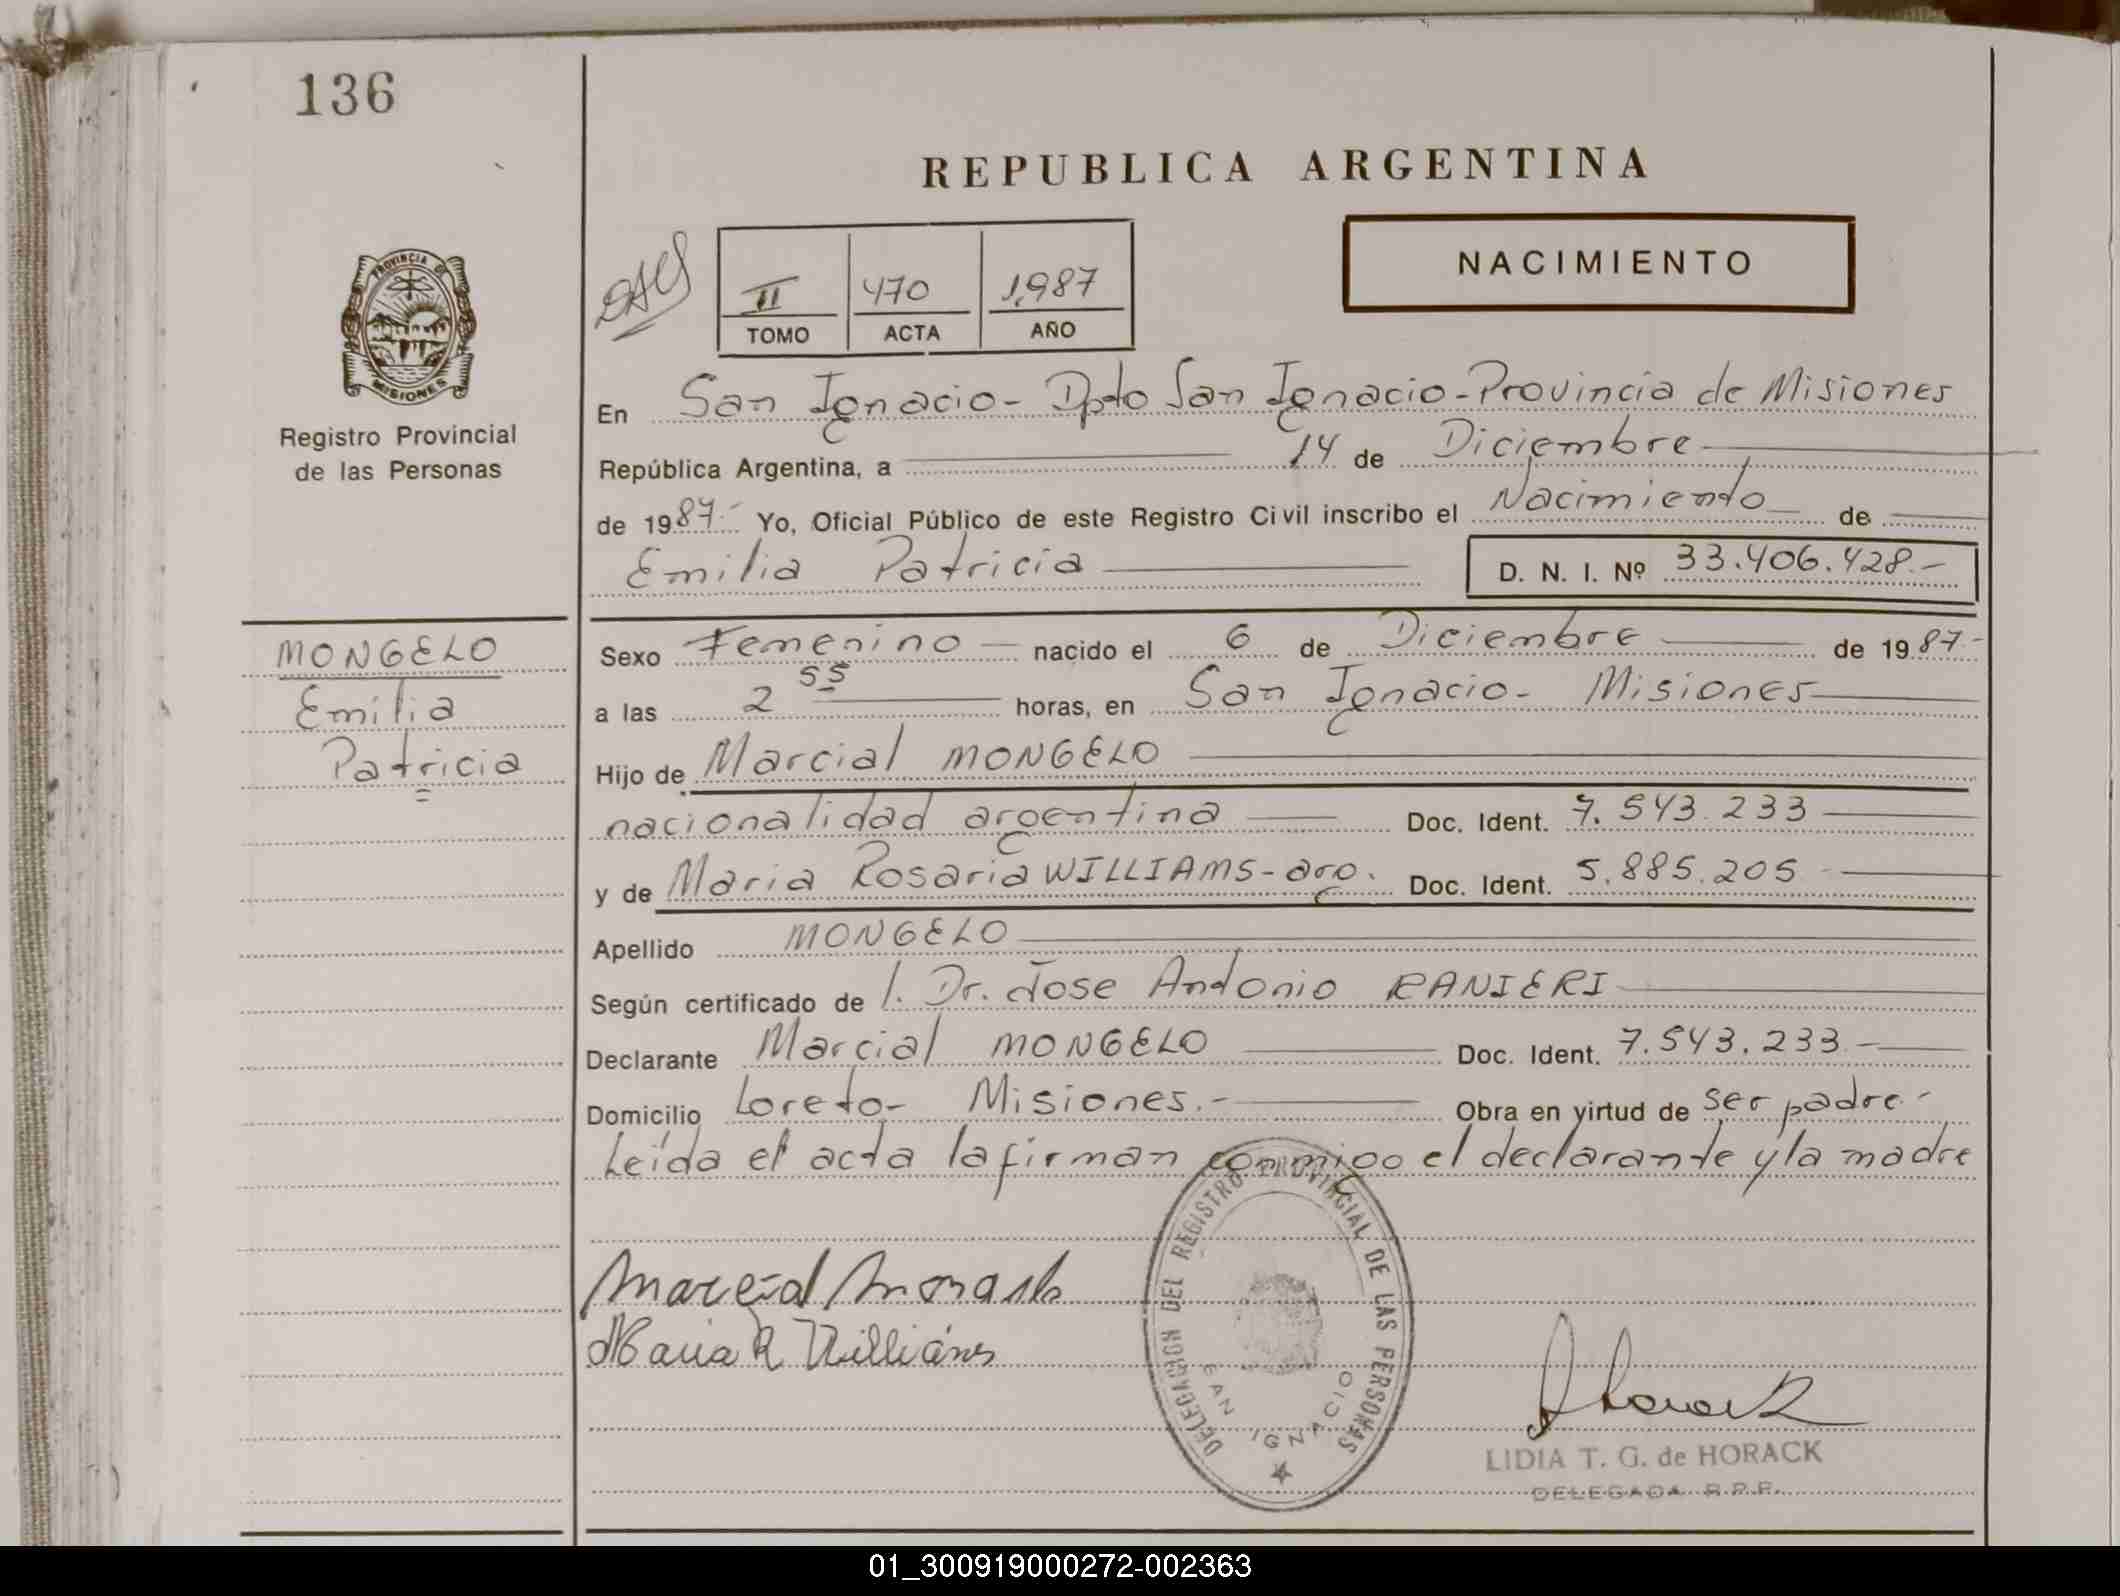 136
REPUBLICA ARGENTINA
NACIMIENTO
II 470 1987
TOMO ACTA AÑO
PROVINCIA DE
MISIONES
Registro Provincial
de las Personas
En San Ignacio - Dpto San Ignacio - Provincia de Misiones
República Argentina, a 14 de Diciembre
de 1987.- Yo, Oficial Público de este Registro Civil inscribo el Nacimiento de
Emilia Patricia D. N. I. Nº 33.406.428.-
MONGELO
Emilia
Patricia
Sexo Femenino nacido el 6 de Diciembre de 1987.-
a las 2 55 horas, en San Ignacio - Misiones
Hijo de Marcial MONGELO
nacionalidad argentina Doc. Ident. 7.543.233
y de Maria Rosaria WILLIAMS - arg. Doc. Ident. 5.885.205
Apellido MONGELO
Según certificado de l. Dr. Jose Antonio RANIERI
Declarante Marcial MONGELO Doc. Ident. 7.543.233.-
Domicilio Loreto - Misiones.- Obra en virtud de ser padre.-
Leída el acta la firman conmigo el declarante y la madre
Marcial
Maria R Williams
DELEGACION DEL REGISTRO PROVINCIAL DE LAS PERSONAS
SAN IGNACIO
Horack
LIDIA T. G. de HORACK
DELEGADA R.P.P.
01_300919000272-002363